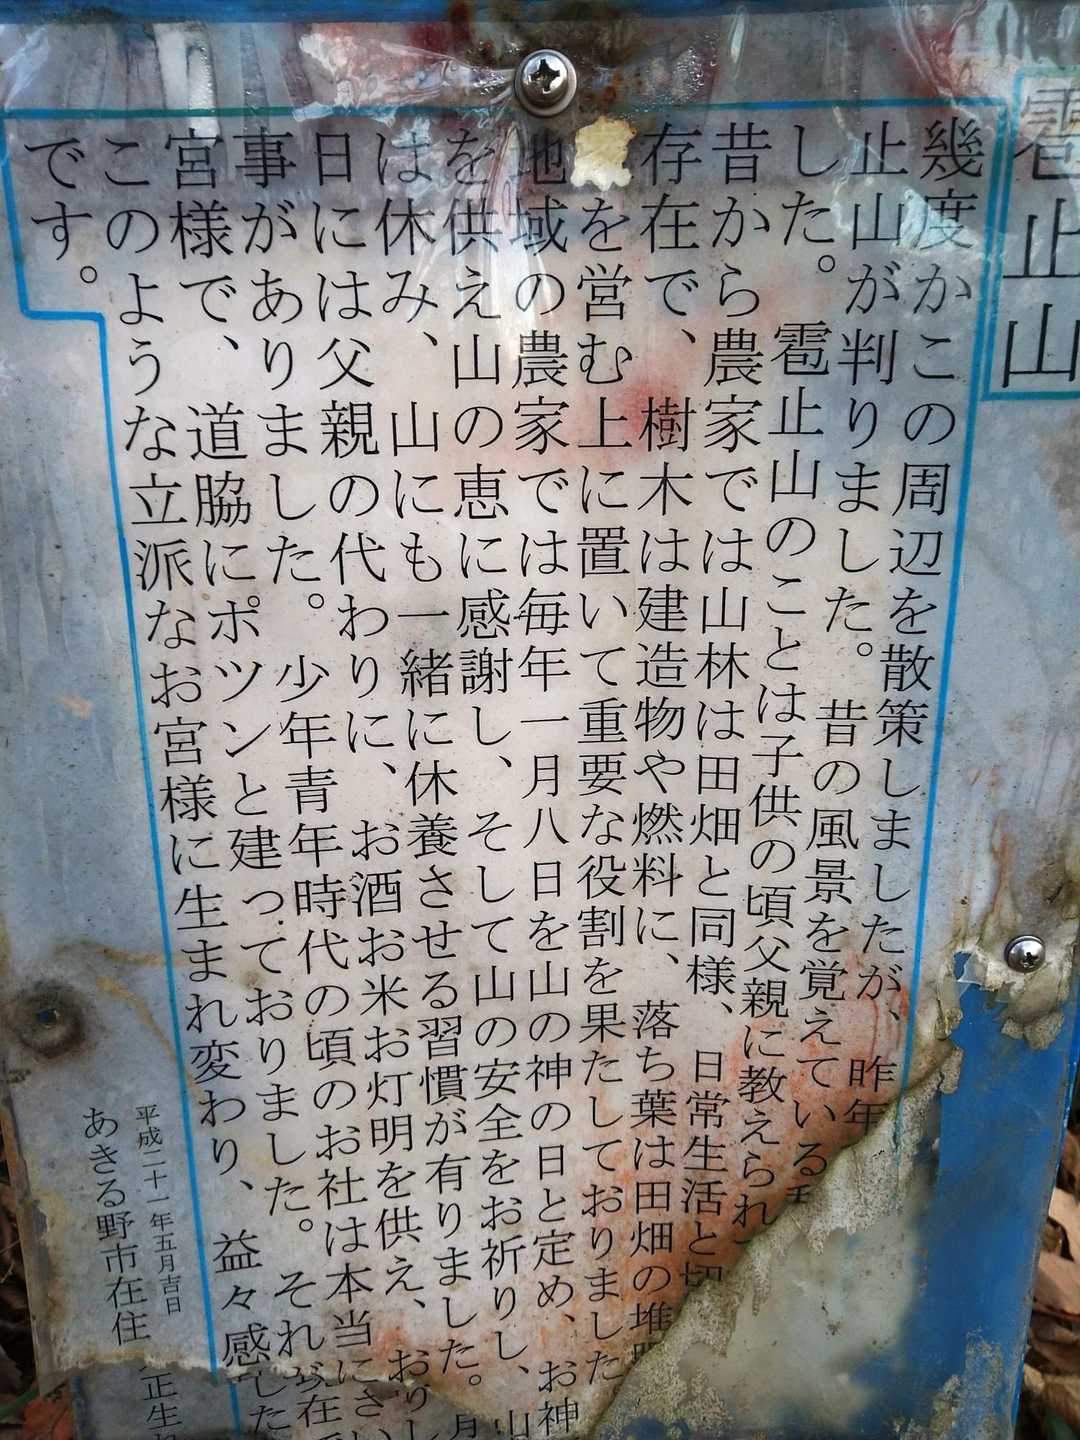 雹止山
幾度かこの周辺を散策しましたが、昨年
止山が判りました。昔の風景を覚えている
した。雹止山のことは子供の頃父親に教えられ
昔から農家では山林は田畑と同様、日常生活と切
存在で、樹木は建造物や燃料に、落ち葉は田畑の堆肥
を営む上に置いて重要な役割を果たしておりました
地域の農家では毎年一月八日を山の神の日と定め、お神
を供え山の恵に感謝し、そして山の安全をお祈りし、山
は休み、山にも一緒に休養させる習慣が有りました。月
日には父親の代わりに、お酒お米お灯明を供え、おりし
事がありました。少年青年時代の頃のお社は本当にさい
宮様で、道脇にポツンと建っておりました。それが在
このような立派なお宮様に生まれ変わり、益々感した
です。
平成二十一年五月吉日
あきる野市在住
正生